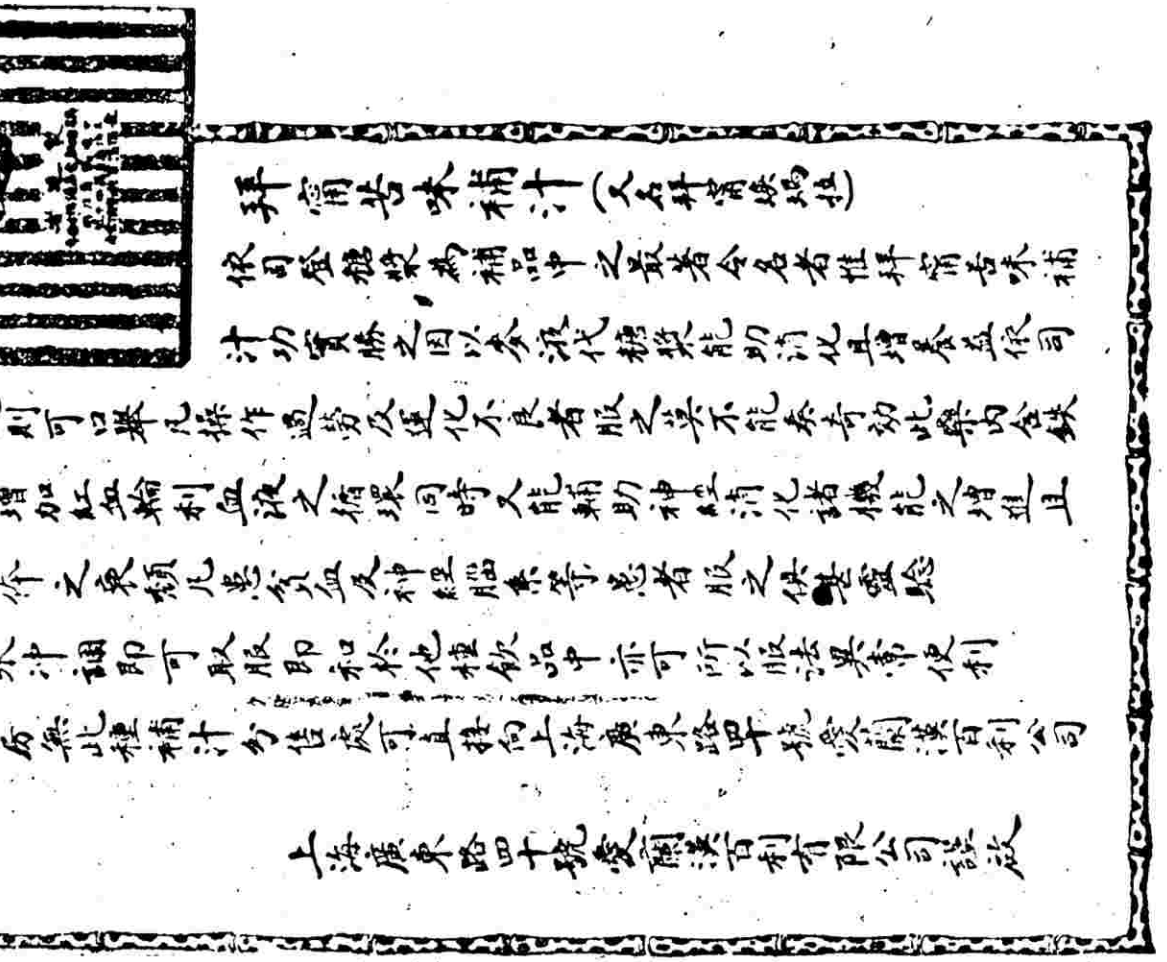 拜甯苦味補汁(又名拜甯燠瑪拉)
依司登糖漿為補品中之最著令名者惟拜甯苦味補
汁功實勝之因以麥液代糖漿能助消化且增養益依司
則可口歟凡操作過勞及運化不良者服之莫不能奏奇效此藥內含鉄
增加紅血輪利血液之循環同時又能輔助神經消化諸機能之增進且
之衰頹凡患貧血及神經腦系等患者服之俱甚靈驗
中調即可取服即和於他種飲品中亦可所以服法異常便利
房無此種補汁分售處可直接向上海廣東路四十號愛蘭漢百利公司
上海廣東路四十號愛蘭漢百利有限公司謹啟